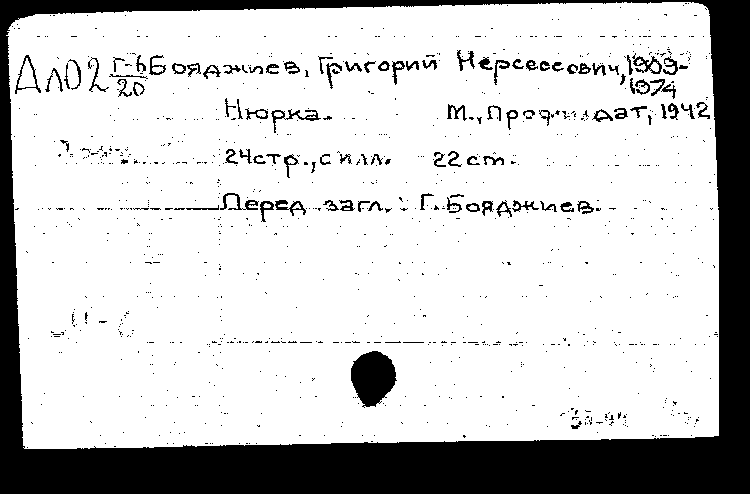 ДлО2 Г-6/20 Бояджиев, Григорий Нерсесович, 1909-
1974
Нюрка. М., Профиздат, 1942
24стр., с илл. 22 cm.
Перед загл.: Г. Бояджиев.